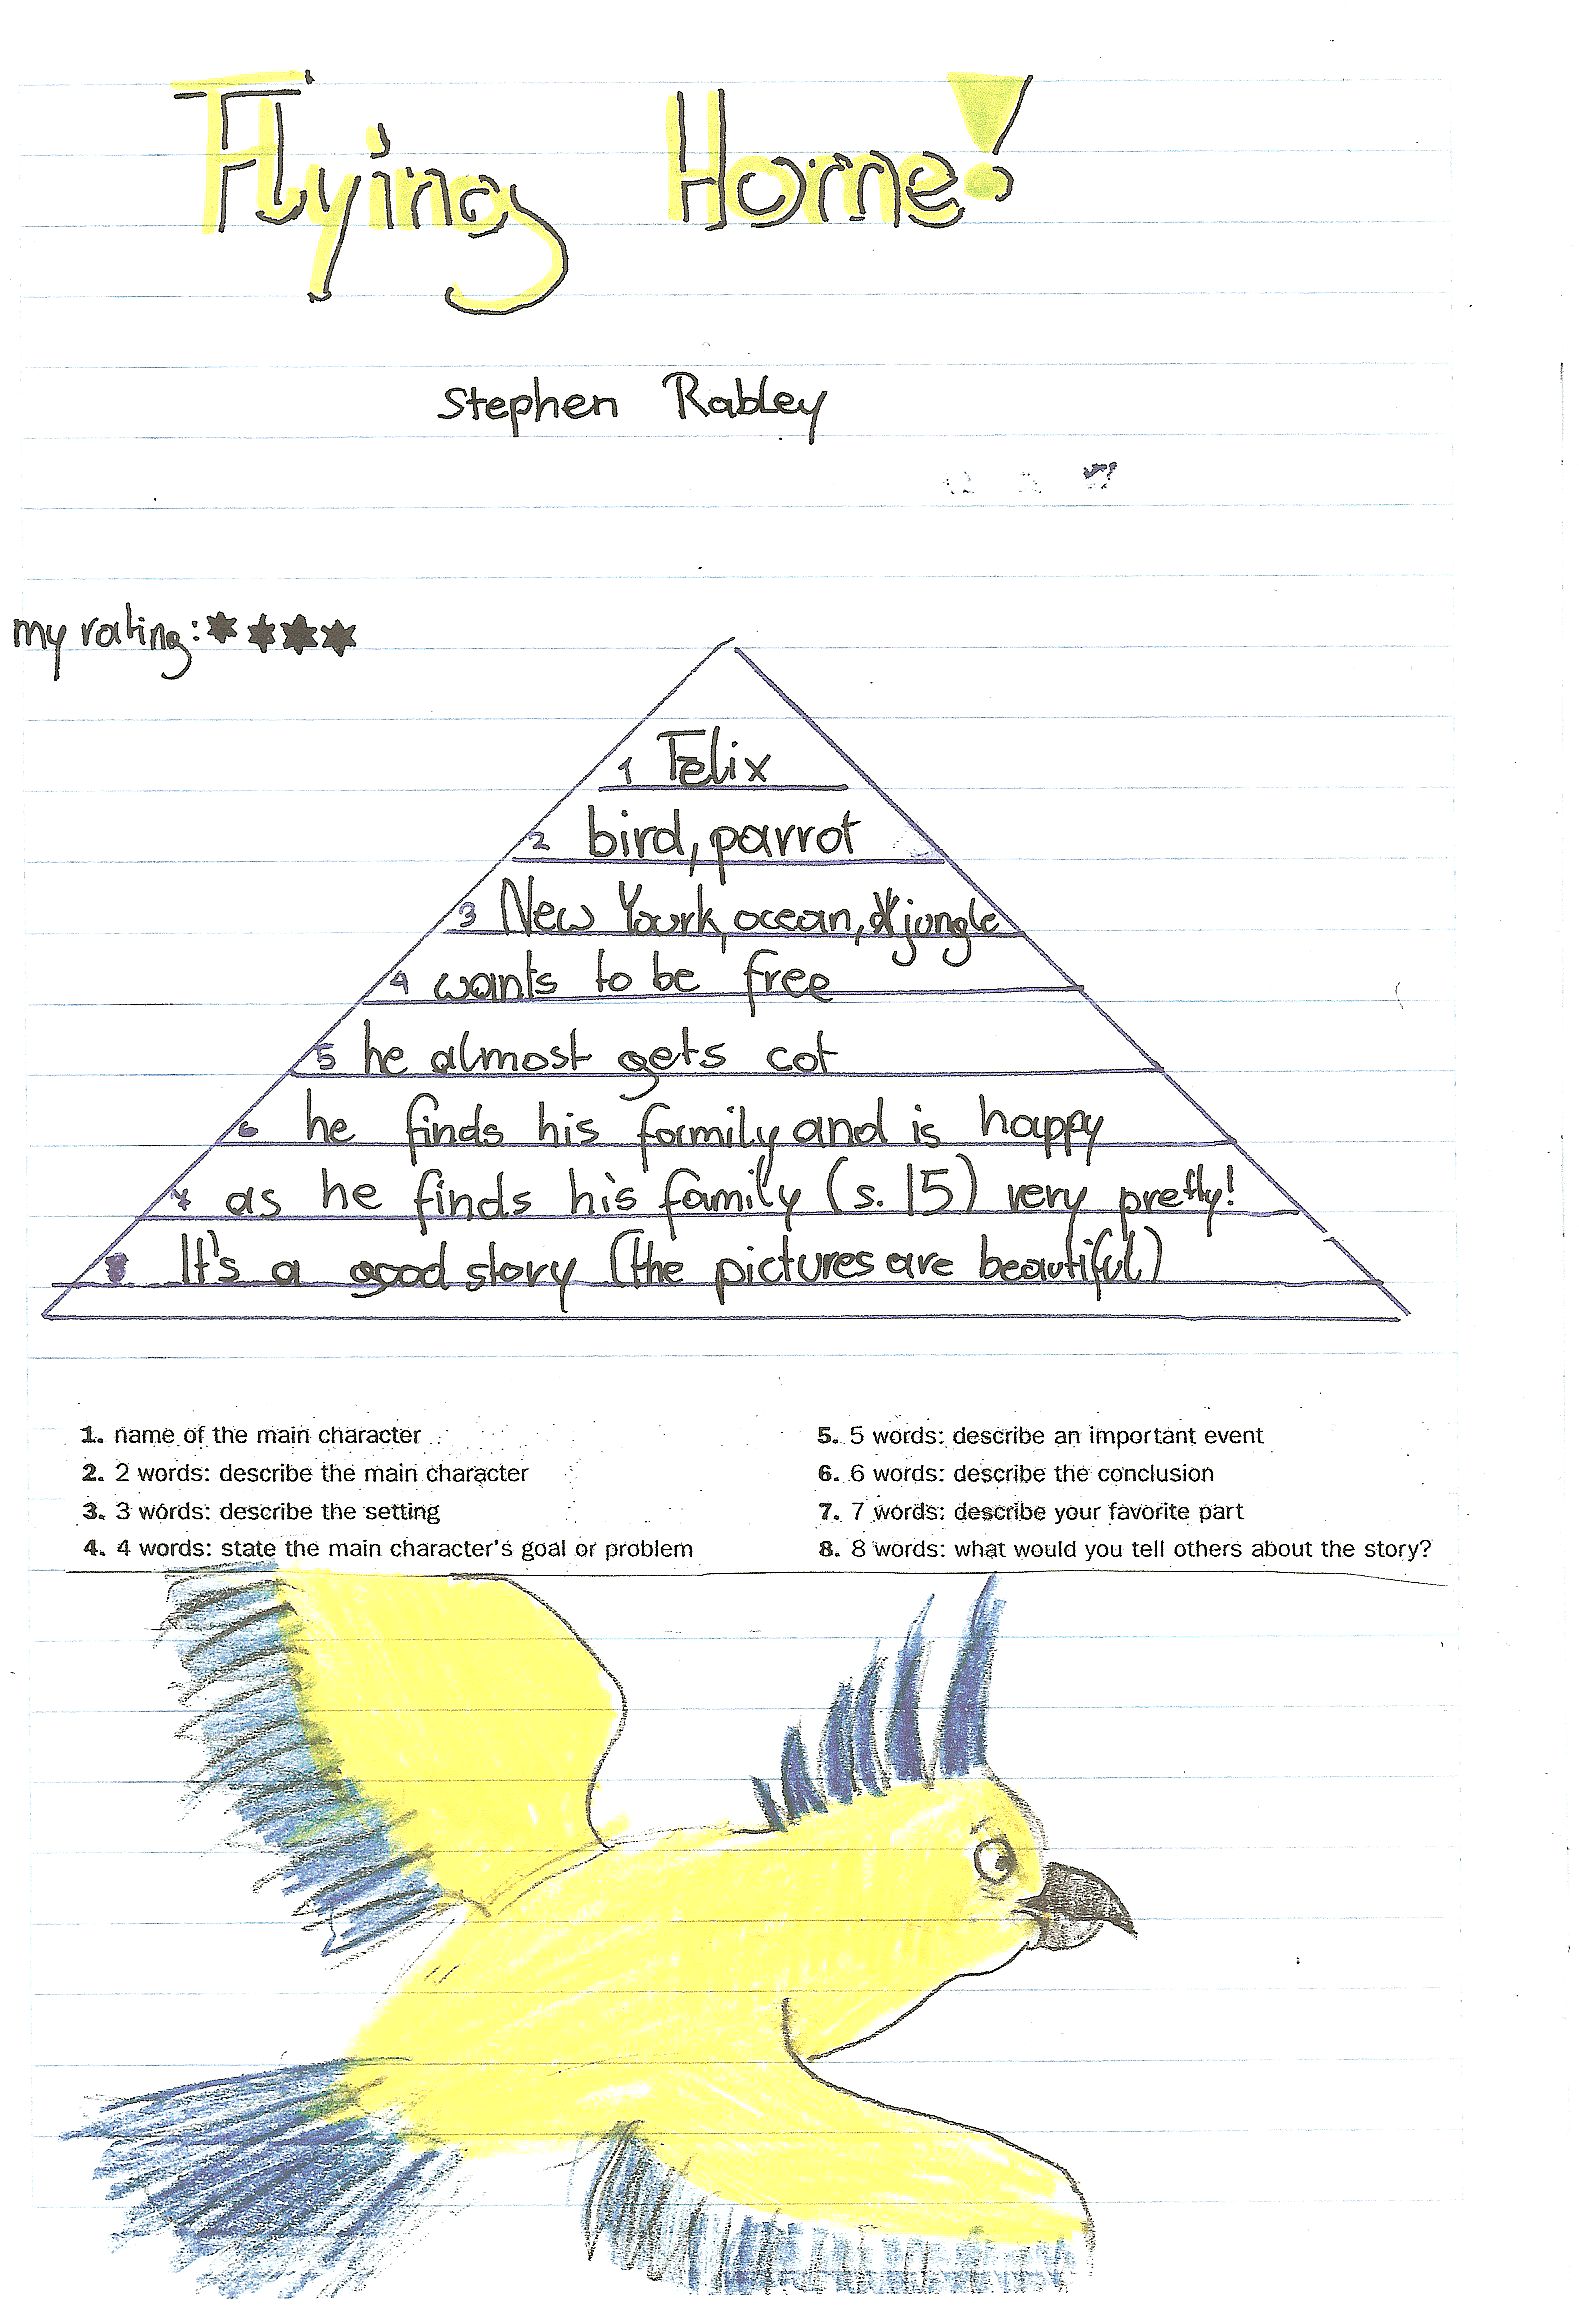 Flying Home!
Stephen Rabley
my rating: ★★★★
1 Felix
2 bird, parrot
3 New Yourk, ocean, jungle
4 wants to be free
5 he almost gets cot
6 he finds his family and is happy
7 as he finds his family (s. 15) very pretty!
8 It's a good story (the pictures are beautiful)
1. name of the main character
2. 2 words: describe the main character
3. 3 words: describe the setting
4. 4 words: state the main character's goal or problem
5. 5 words: describe an important event
6. 6 words: describe the conclusion
7. 7 words: describe your favorite part
8. 8 words: what would you tell others about the story?